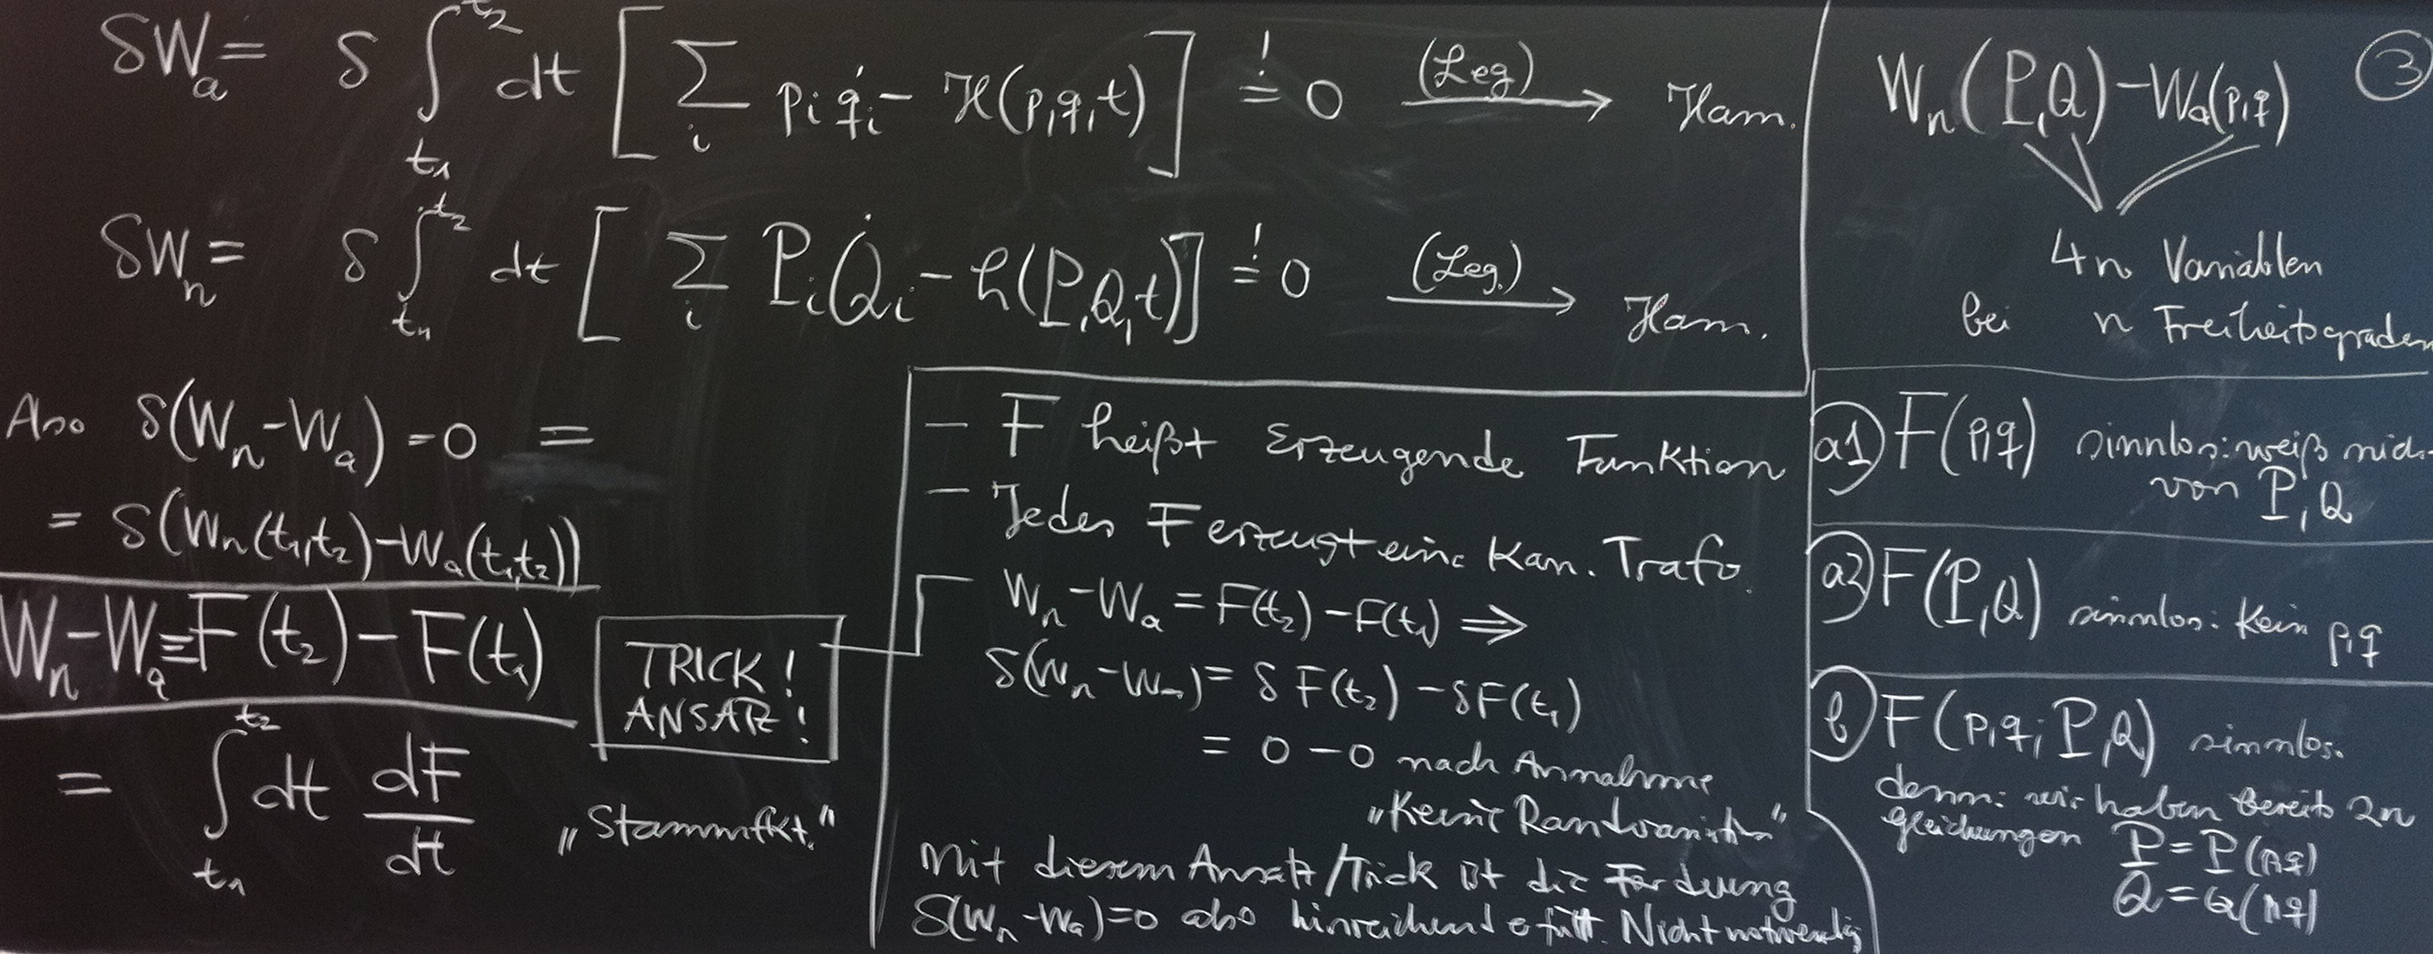 δW_a = δ ∫_{t_1}^{t_2} dt [ Σ_i p_i q̇_i - ℋ(p,q,t) ] =! 0 (Leg) → Ham.
δW_n = δ ∫_{t_1}^{t_2} dt [ Σ_i P_i Q̇_i - h(P,Q,t) ] =! 0 (Leg.) → Ham.
Also δ(W_n - W_a) = 0 =
= δ(W_n(t_1,t_2) - W_a(t_1,t_2))
W_n - W_a ≡ F(t_2) - F(t_1)
= ∫_{t_1}^{t_2} dt dF/dt „Stammfkt."
TRICK!
ANSATZ!
- F heißt Erzeugende Funktion
- Jedes F erzeugt eine Kan. Trafo.
W_n - W_a = F(t_2) - F(t_1) ⇒
δ(W_n - W_a) = δF(t_2) - δF(t_1)
= 0 - 0 nach Annahme
„Keine Randvariation"
Mit diesem Ansatz/Trick ist die Forderung
δ(W_n - W_a) = 0 also hinreichend erfüllt. Nicht notwendig
③
W_n(P,Q) - W_a(p,q)
4n Variablen
bei n Freiheitsgraden
a1) F(p,q) sinnlos: weiß nich
von P, Q
a2) F(P,Q) sinnlos: Kein p,q
b) F(p,q; P,Q) sinnlos.
denn: wir haben bereits 2n
gleichungen P = P(p,q)
Q = Q(p,q)